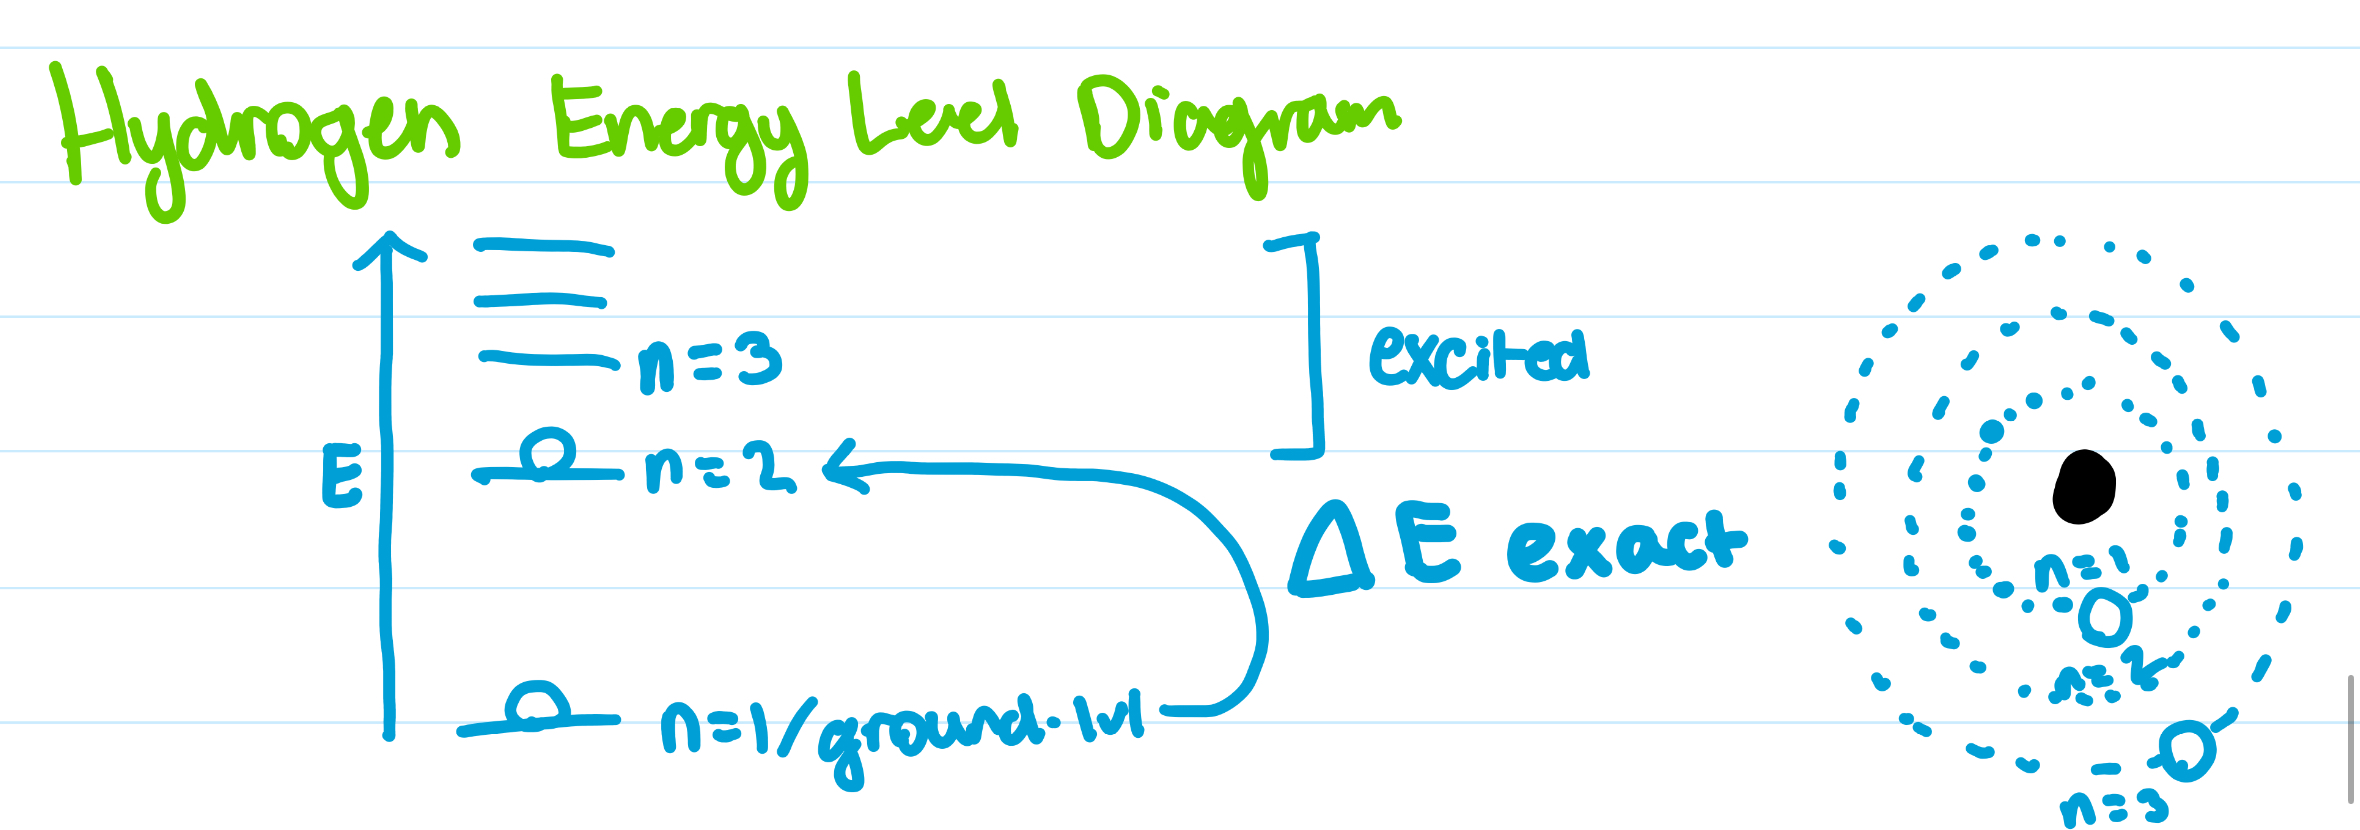 Hydrogen Energy Level Diagram
n=3
excited
E
n=2
ΔE exact
n=1/ground
n=1
n=2
n=3